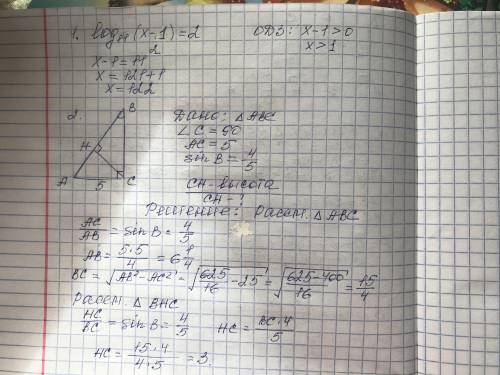 1. log₁₁(x-1)=2 ОДЗ: x-1>0
x-1=11² x>1
x=121+1
x=122
2. B H A 5 C
Дано: △ABC
∠C=90
AC=5
sinB=4/5
CH-высота
CH-?
Решение: Рассм. △ABC
AC/AB=sinB=4/5
AB=5·5/4=6 1/4
BC=√AB²-AC²=√625/16-25=√625-400/16=15/4
Рассм. △BHC
HC/BC=sinB=4/5 HC=BC·4/5
HC=15·4/4·5=3.